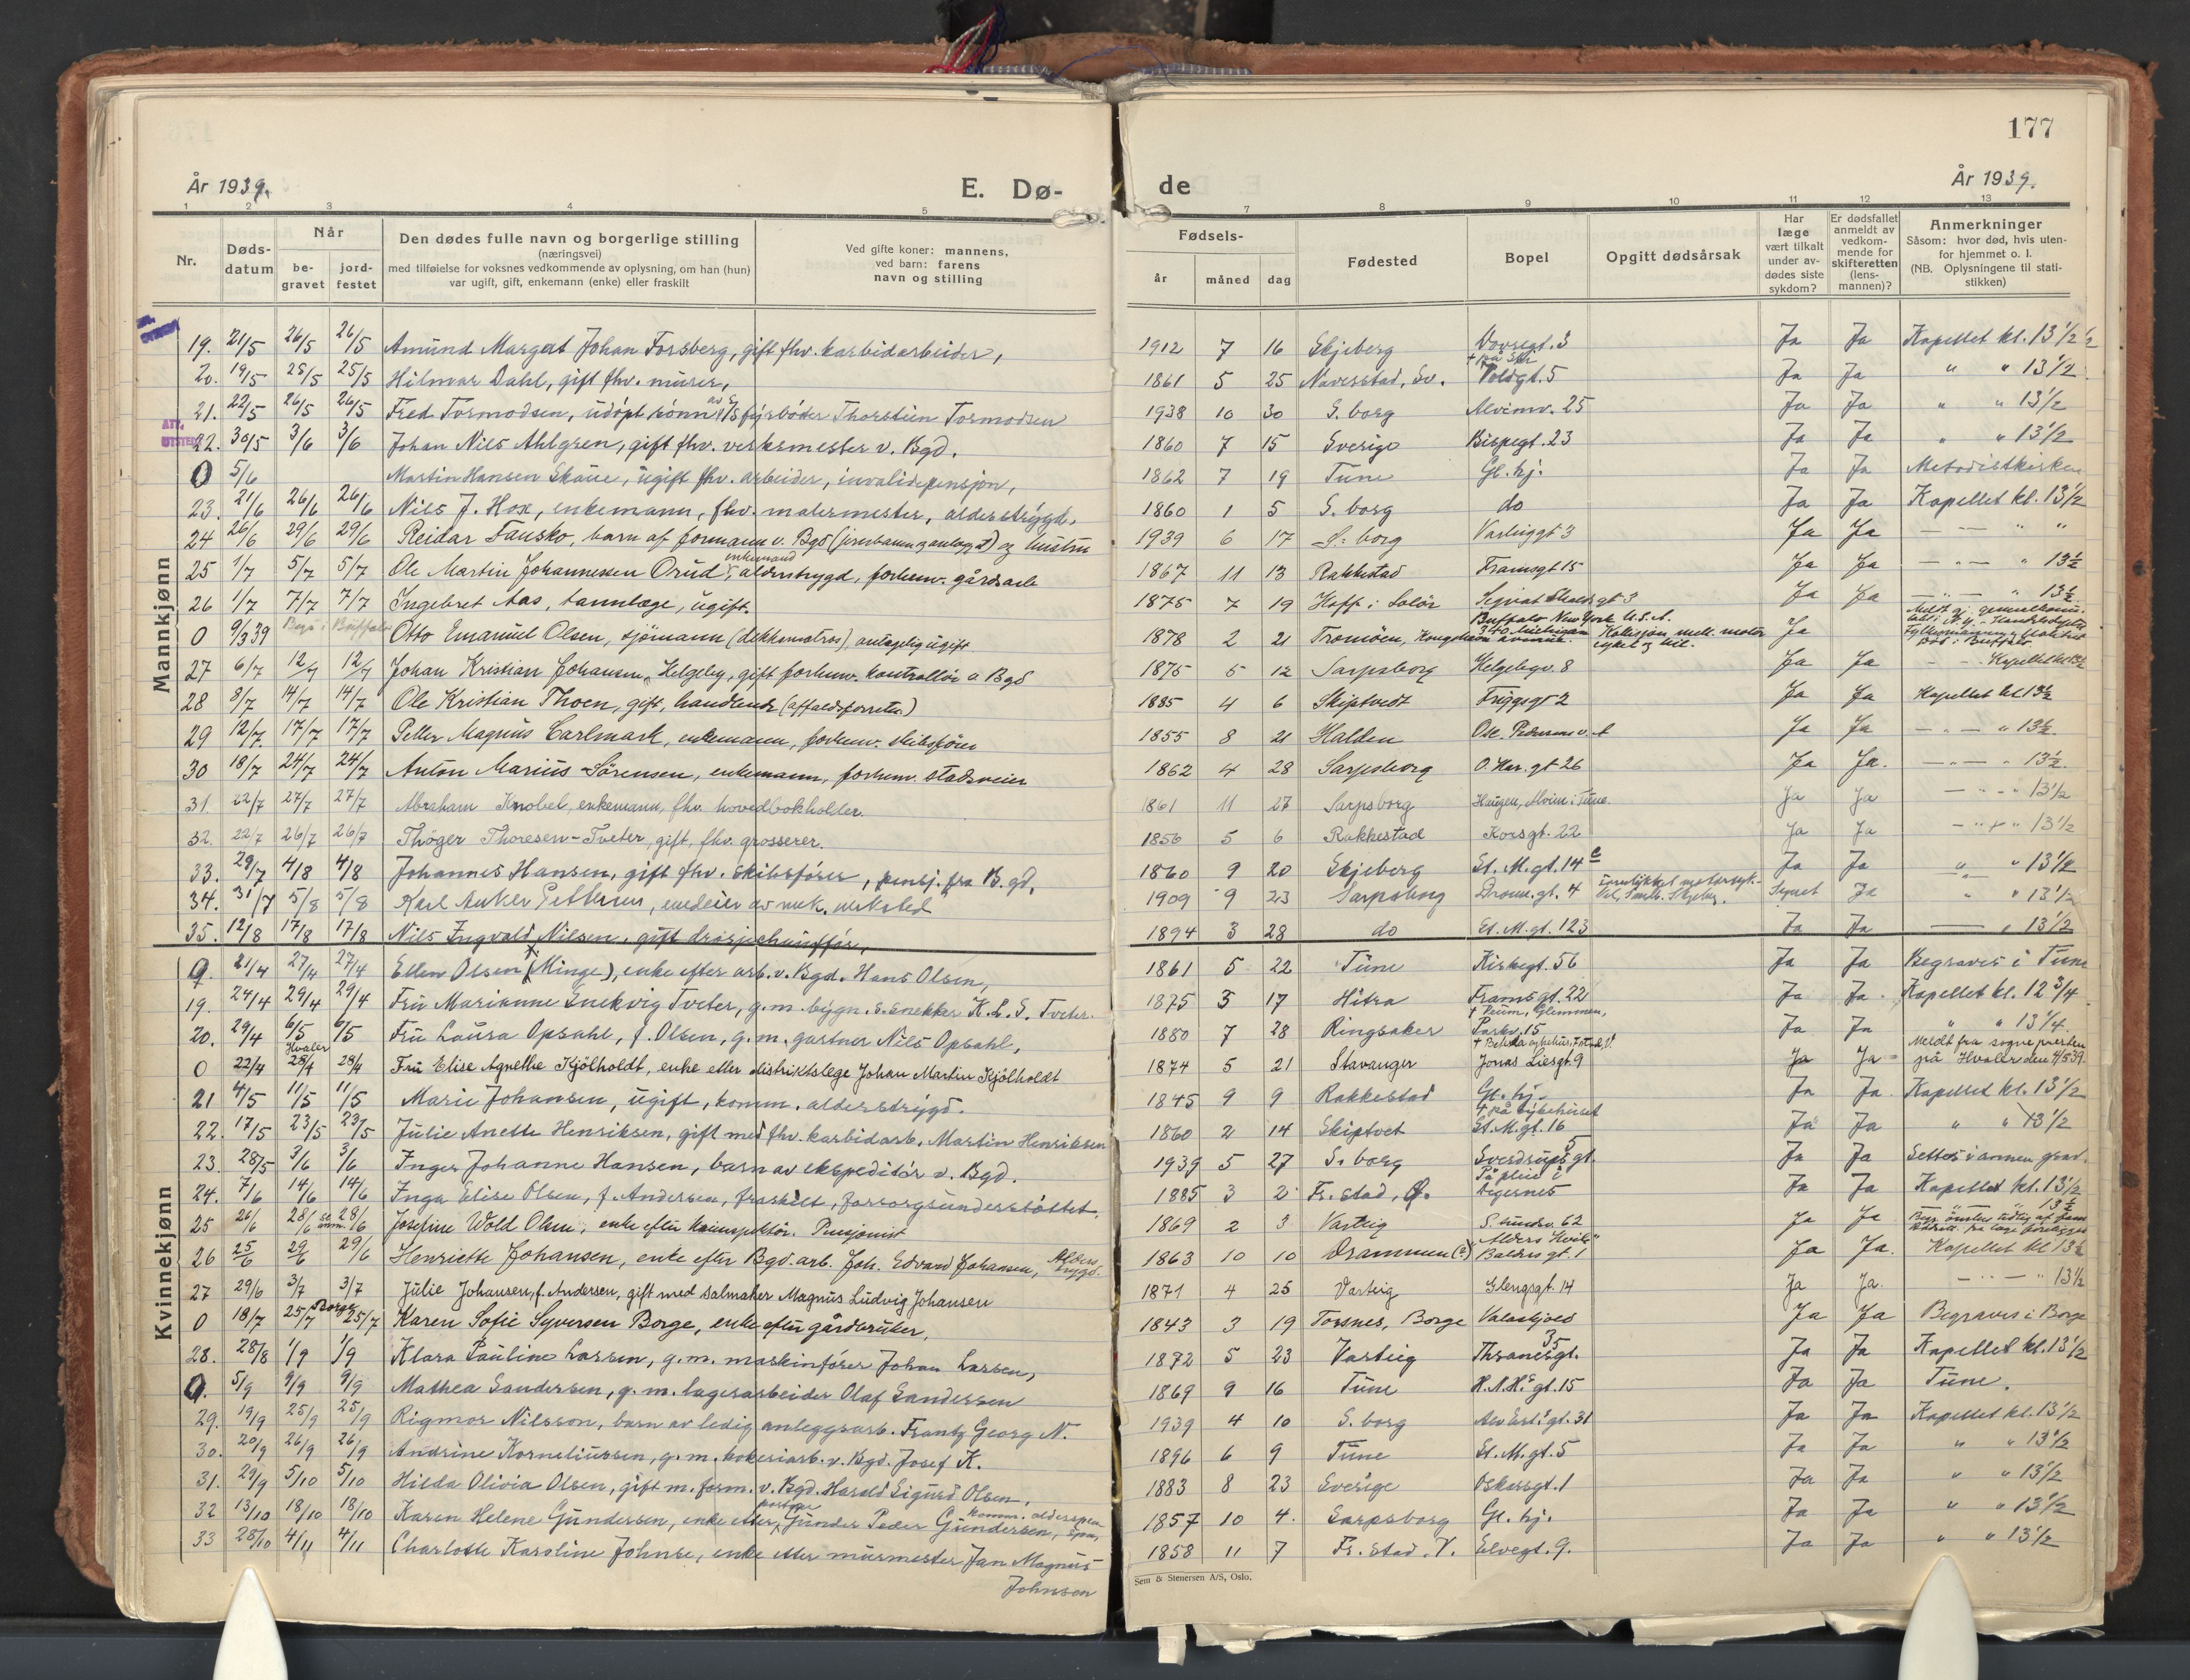 177
År 1939.
E. Dø-
de
År 1939.
1 2 3 4 5 7 8 9 10 11 12 13
Nr.
Døds-
datum
Når
be-
gravet
jord-
festet
Den dødes fulle navn og borgerlige stilling
(næringsvei)
med tilføielse for voksnes vedkommende av oplysning, om han (hun)
var ugift, gift, enkemann (enke) eller fraskilt
Ved gifte koner: mannens,
ved barn: farens
navn og stilling
Fødsels-
år måned dag
Fødested
Bopel
Opgitt dødsårsak
Har
læge
vært tilkalt
under av-
dødes siste
sykdom?
Er dødsfallet
anmeldt av
vedkom-
mende for
skifteretten
(lens-
mannen)?
Anmerkninger
Såsom: hvor død, hvis uten-
for hjemmet o. l.
(NB. Oplysningene til stati-
stikken)
Mankjønn
19. 21/5 26/5 26/5 Amund Margat Johan Forsberg, gift fhv. karbidarbeider, 1912 7 16 Skjeberg Ja Ja Kapellet kl. 13 1/2
20. 19/5 25/5 25/5 Hilmar Dahl, gift fhv. murer, 1861 5 25 Naverstad, Sv. Voldgt. 5 Ja Ja " " 13 1/2
21. 22/5 26/5 26/5 Fred Tormodsen, udöpt sönn av fyrböter Thorstein Tormodsen 1938 10 30 S. borg Alvimv. 25 Ja Ja " " 13 1/2
22. 30/5 3/6 3/6 Johan Nils Ahlgren, gift fhv. verksmester v. Bgd. 1860 7 15 Sverige Bispegt. 23 Ja Ja " " 13 1/2
0 5/6 Martin Hansen Skaue, ugift fhv. arbeider, invalidepensjon, 1862 7 19 Tune Gl. hj. Ja Ja Metodistkirken
23. 21/6 26/6 26/6 Nils J. Hox, enkemann, fhv. malermester, alderstrygd, 1860 1 5 S. borg do Ja Ja Kapellet kl. 13 1/2
24 26/6 29/6 29/6 Reidar Fausko, barn af formann v. Bgd og hustru 1939 6 17 S. borg Varteiggt 3 Ja Ja — — " "
25 1/7 5/7 5/7 Ole Martin Johannessen Orud enkemand alderstrygd, forhenv. gårdsarb 1867 11 13 Rakkestad Framsgt 15 Ja Ja — " — " 13 1/2
26 1/7 7/7 7/7 Ingebret Aas, tannlæge, ugift. 1875 7 19 Hoff i Solör Sigvat Skalds gt 3 Ja Ja — " — " 13 1/2
0 9/3 39 Begr. i Buffalo Otto Emanuel Olsen, sjömann (dekksmatros), antagelig ugift 1878 2 21 Tromöen, Buffalo New York U.S.A. 340 Michigan avenue. Kollisjon mell. motor- cykel og bil. Ja Död i Buffalo.
27 6/7 12/7 12/7 Johan Kristian Johansen, Helgeby, gift forhenv. kontrollör v Bgd 1875 5 12 Sarpsborg Helgebyv. 8 Ja Ja - - Kapellet kl 13 1/2
28 8/7 14/7 14/7 Ole Kristian Thoen, gift, handlende (affaldsforretn.) 1885 4 6 Skiptvedt Friggsgt 2 Ja Ja Kapellet kl 13 1/2
29 12/7. 17/7 17/7 Petter Magnus Carlmark, enkemann, forhenv. skibsförer 1855 8 21 Halden Ja Ja — " — " 13 1/2
30 18/7 24/7 24/7 Anton Marius Sörensen, enkemann, forhenv. stadsveier 1862 4 28 Sarpsborg O. Har. gt 26 Ja Ja. — " — " 13 1/2
31. 22/7 27/7 27/7 Abraham Knobel, enkemann, fhv. hovedbokholder. 1861 11 27 Sarpsborg Haugen, Alvim i Tune. Ja Ja — " — " 13 1/2
32. 22/7 26/7 26/7 Thöger Thoresen-Tveter, gift, fhv. grosserer. 1856 5 6 Rakkestad Korsgt. 22 Ja Ja — " — " 13 1/2
33. 29/7 4/8 4/8 Johannes Hansen, gift fhv. skibsförer, pensj. fra B. gd. 1860 9 20 Skjeberg St. M. gt. 14 c Ja Ja " " 13 1/2
34. 31/7 5/8 5/8 Karl Anker Pettersen, eneeier av mek. verksted 1909 9 23 Sarpsborg Dronn. gt. 4 Ja " " 13 1/2
35. 12/8 17/8 17/8 Nils Ingvald Nilsen, gift drosjechauffør, 1894 3 28 do St. M. gt. 123 Ja Ja — " 13 1/2
Kvinnekjønn
0. 21/4 27/4 27/4 Ellen Olsen (Minge), enke efter arb. v. Bgd. Hans Olsen, 1861 5 22 Tune Kirkegt. 56 Ja Ja Begraves i Tune
19. 24/4 29/4 29/4 Fru Marianne Snekvig Tveter, g. m. bygn. s. snekker K. L. S. Tveter. 1875 3 17 Hitra Framsgt. 22 Ja Ja. Kapellet kl. 12 3/4
20. 29/4 6/5 6/5 Fru Laura Opsahl, f. Olsen, g. m. gartner Nils Opsahl, 1880 7 28 Ringsaker Parkv. 15 Ja Ja " " 13 1/4.
0 22/4 Hvaler 28/4 28/4 Fru Elise Agnethe Kjölholdt, enke etter distriktslege Johan Martin Kjölholdt 1874 5 21 Stavanger Jonas Liesgt. 9 Ja Ja Meldt fra sognepresten på Hvaler den 4/5 39.
21 4/5 11/5 11/5 Marie Johansen, ugift, komm. alderstrygd. 1845 9 9 Rakkestad Gl. hj. Ja Ja Kapellet kl. 13 1/2
22. 17/5 23/5 23/5 Julie Anette Henriksen, gift med fhv. karbidarb. Martin Henriksen 1860 2 14 Skiptvet + på sykehuset St. M. gt. 16 Ja Ja " " 13 1/2
23. 28/5 3/6 3/6 Inger Johanne Hansen, barn av ekspeditör v. Bgd. 1939 5 27 S. borg Sverdrups gt. 5 Ja Ja Settes i annen grav.
24. 7/6 14/6 14/6 Inga Elise Olsen, f. Andersen, fraskilt, forsorgsunderstöttet. 1885 3 2 Fr. stad, Ø. På pleie i Degernes Ja Ja Kapellet kl. 13 1/2
25 26/6 28/6 28/6 Josefine Wold Olsen, enke efter Pensjonist 1869 2 3 Varteig S. sundsv. 62 Ja Ja 13 1/2
26 25/6 29/6 29/6 Henriette Johansen, enke efter Bgd. arb. Joh. Edvard Johansen, Alders trygd. 1863 10 10 Drammen (?) "Alders Hvile" Balders gt. 1 Ja Ja. Kapellet kl 13 1/2
27 29/6 3/7 3/7 Julie Johansen, f. Andersen, gift med salmaker Magnus Ludvig Johansen 1871 4 25 Varteig Glengsgt. 14 Ja Ja. — " — " 13 1/2
0 18/7 25/7 Borge 25/7 Karen Sofie Syversen Borge, enke efter gårdbruker. 1843 3 19 Torsnes, Borge Valaskjold Ja Ja Begraves i Borge
28. 28/8 1/9 1/9 Klara Pauline Larsen, g. m. maskinförer Johan Larsen, 1872 5 23 Varteig Thranesgt. 35 Ja Ja Kapellet kl. 13 1/2
0. 5/9 9/9 9/9 Mathea Sandersen, g. m. lagerarbeider Olaf Sandersen 1869 9 16 Tune H. N. H.s gt. 15 Ja Ja Tune.
29. 19/9 25/9 25/9 Rigmor Nilsson, barn av ledig anleggsarb. Frantz Georg N. 1939 4 10 S. borg Alv Erl.s gt. 31 Ja Ja Kapellet kl. 13 1/2
30. 20/9 26/9 26/9 Andrine Korneliussen, g. m. kokeriarb. v. Bgd. Josef K. 1896 6 9 Tune St. M. gt. 5 Ja Ja " " 13 1/2
31. 29/9 5/10 5/10 Hilda Olivia Olsen, gift m. form. v. Bgd. Harald Sigurd Olsen. 1883 8 23 Sverige Oskarsgt. 1 Ja Ja " " 13 1/2
32 13/10 18/10 18/10 Karen Helene Gundersen, enke etter Gunder Peder Gundersen, 1857 10 4. Sarpsborg Gl. hj. Ja Ja " " 13 1/2
33 28/10 4/11 4/11 Charlotte Karoline Johnse, enke etter murmester Jan Magnus Johnsen 1858 11 7 Fr. stad. V. Elvegt. 9. Ja Ja " " 13 1/2
Sem & Stenersen A/S, Oslo.